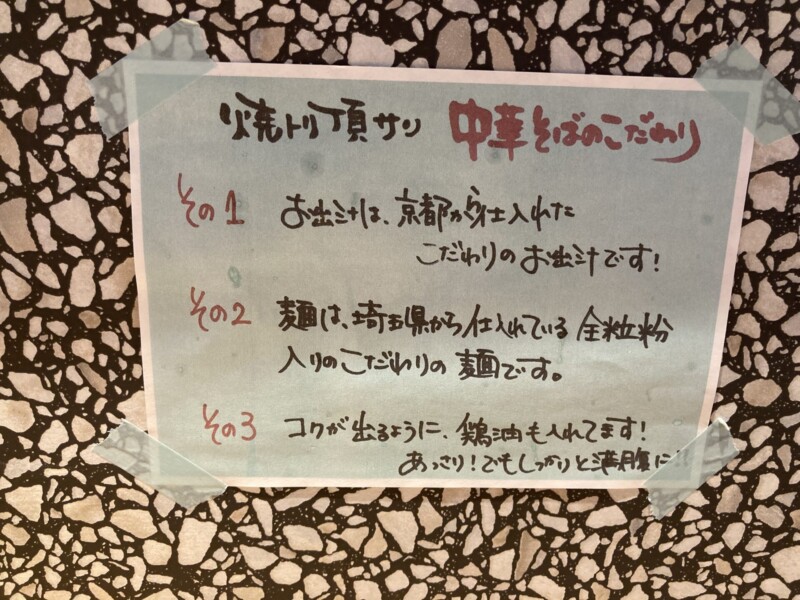 焼トリ頂サン 中華そばのこだわり
その1 お出汁は、京都から仕入れた
こだわりのお出汁です!
その2 麺は、埼玉県から仕入れている全粒粉
入りのこだわりの麺です。
その3 コクが出るように、鶏油も入れてます!
あっさり!でもしっかりと満腹に!!